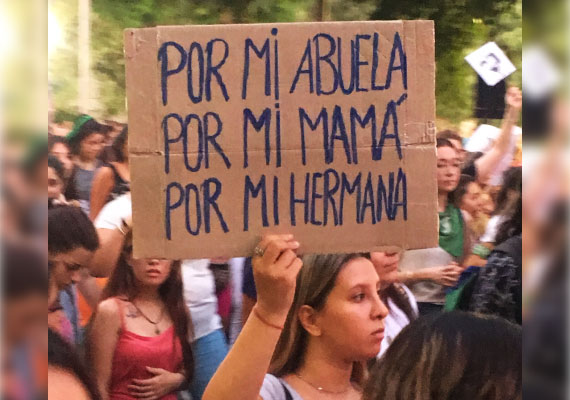 POR MI ABUELA
POR MI MAMÁ
POR MI HERMANA